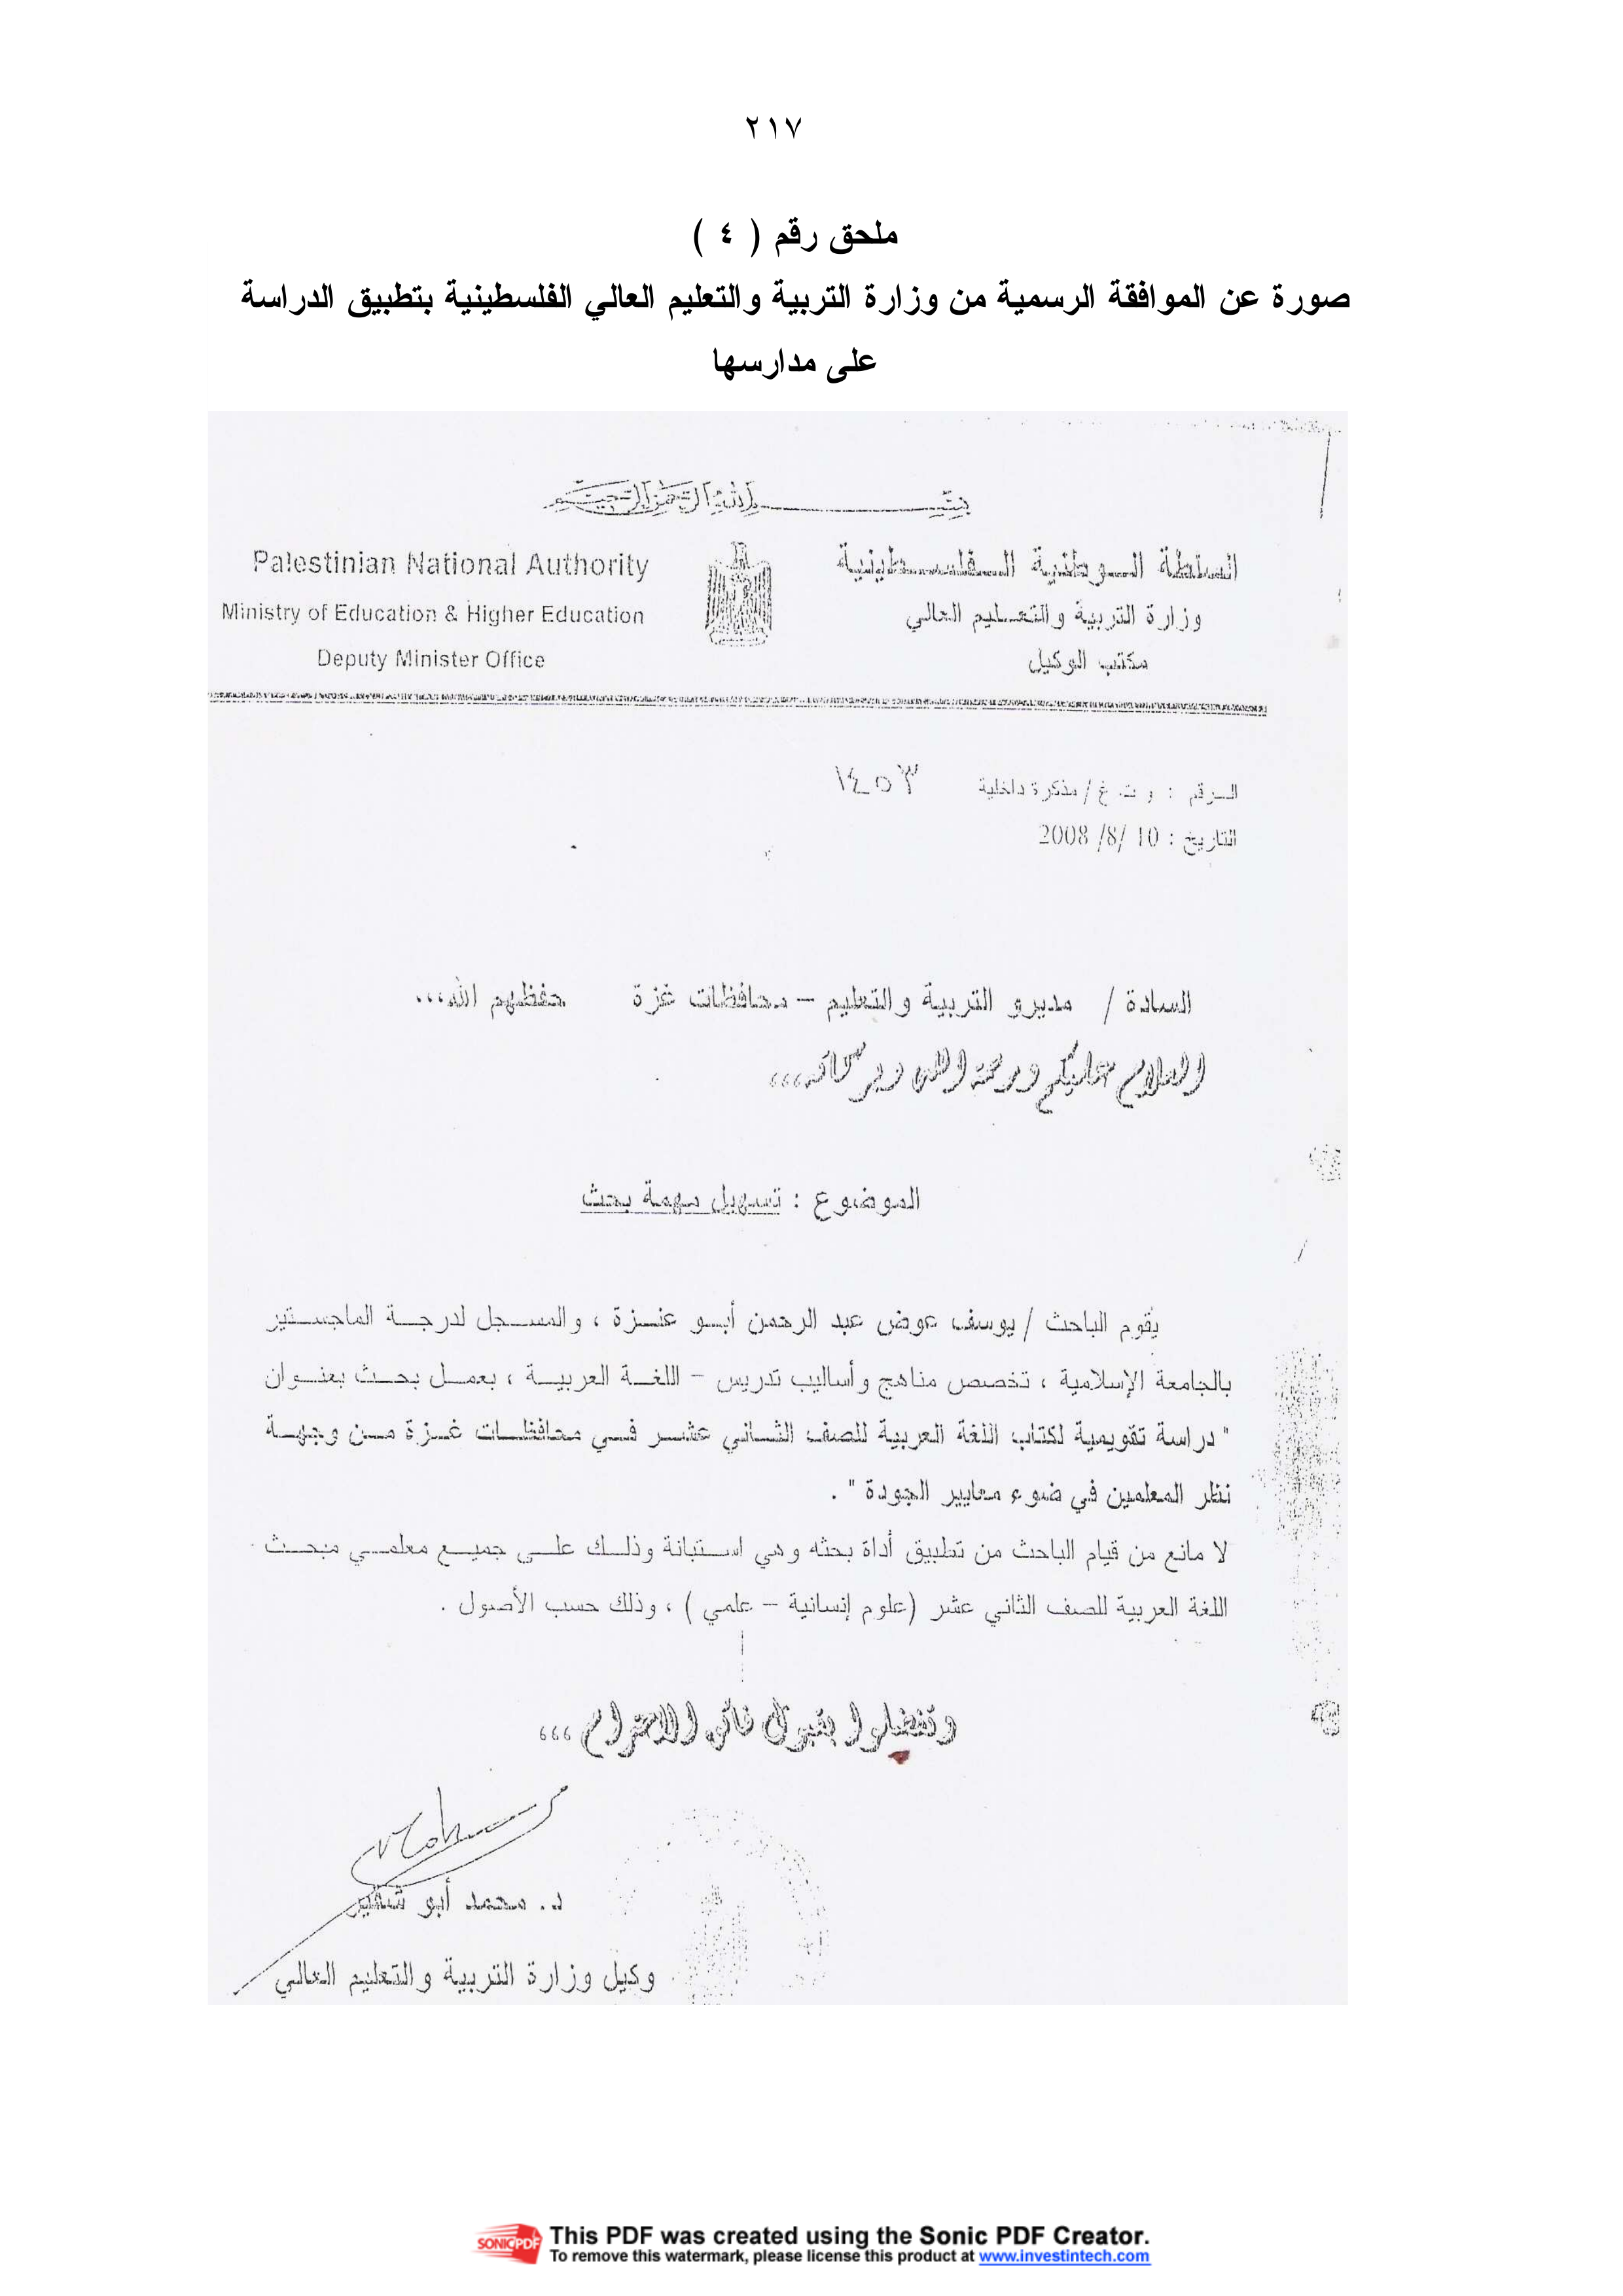 ٢١٧
ملحق رقم ( ٤ )
صورة عن الموافقة الرسمية من وزارة التربية والتعليم العالي الفلسطينية بتطبيق الدراسة
على مدارسها
بسم الله الرحمن الرحيم
Palestinian National Authority
Ministry of Education & Higher Education
Deputy Minister Office
السلطة الوطنية الفلسطينية
وزارة التربية والتعليم العالي
مكتب الوكيل
الرقم : و ت. غ / مذكرة داخلية ١٤٥٣
التاريخ : 10 /8/ 2008
السادة / مديرو التربية والتعليم – محافظات غزة حفظهم الله،،،
السلام عليكم ورحمة الله وبركاته،،،
الموضوع : تسهيل مهمة بحث
يقوم الباحث / يوسف عوض عبد الرحمن أبو عنزة ، والمسجل لدرجة الماجستير
بالجامعة الإسلامية ، تخصص مناهج وأساليب تدريس – اللغة العربية ، بعمل بحث بعنوان
" دراسة تقويمية لكتاب اللغة العربية للصف الثاني عشر في محافظات غزة من وجهة
نظر المعلمين في ضوء معايير الجودة " .
لا مانع من قيام الباحث من تطبيق أداة بحثه وهي استبانة وذلك على جميع معلمي مبحث
اللغة العربية للصف الثاني عشر (علوم إنسانية – علمي ) ، وذلك حسب الأصول .
وتفضلوا بقبول فائق الاحترام ،،،
د. محمد أبو شقير
وكيل وزارة التربية والتعليم العالي
SONICPDF
This PDF was created using the Sonic PDF Creator.
To remove this watermark, please license this product at www.investintech.com